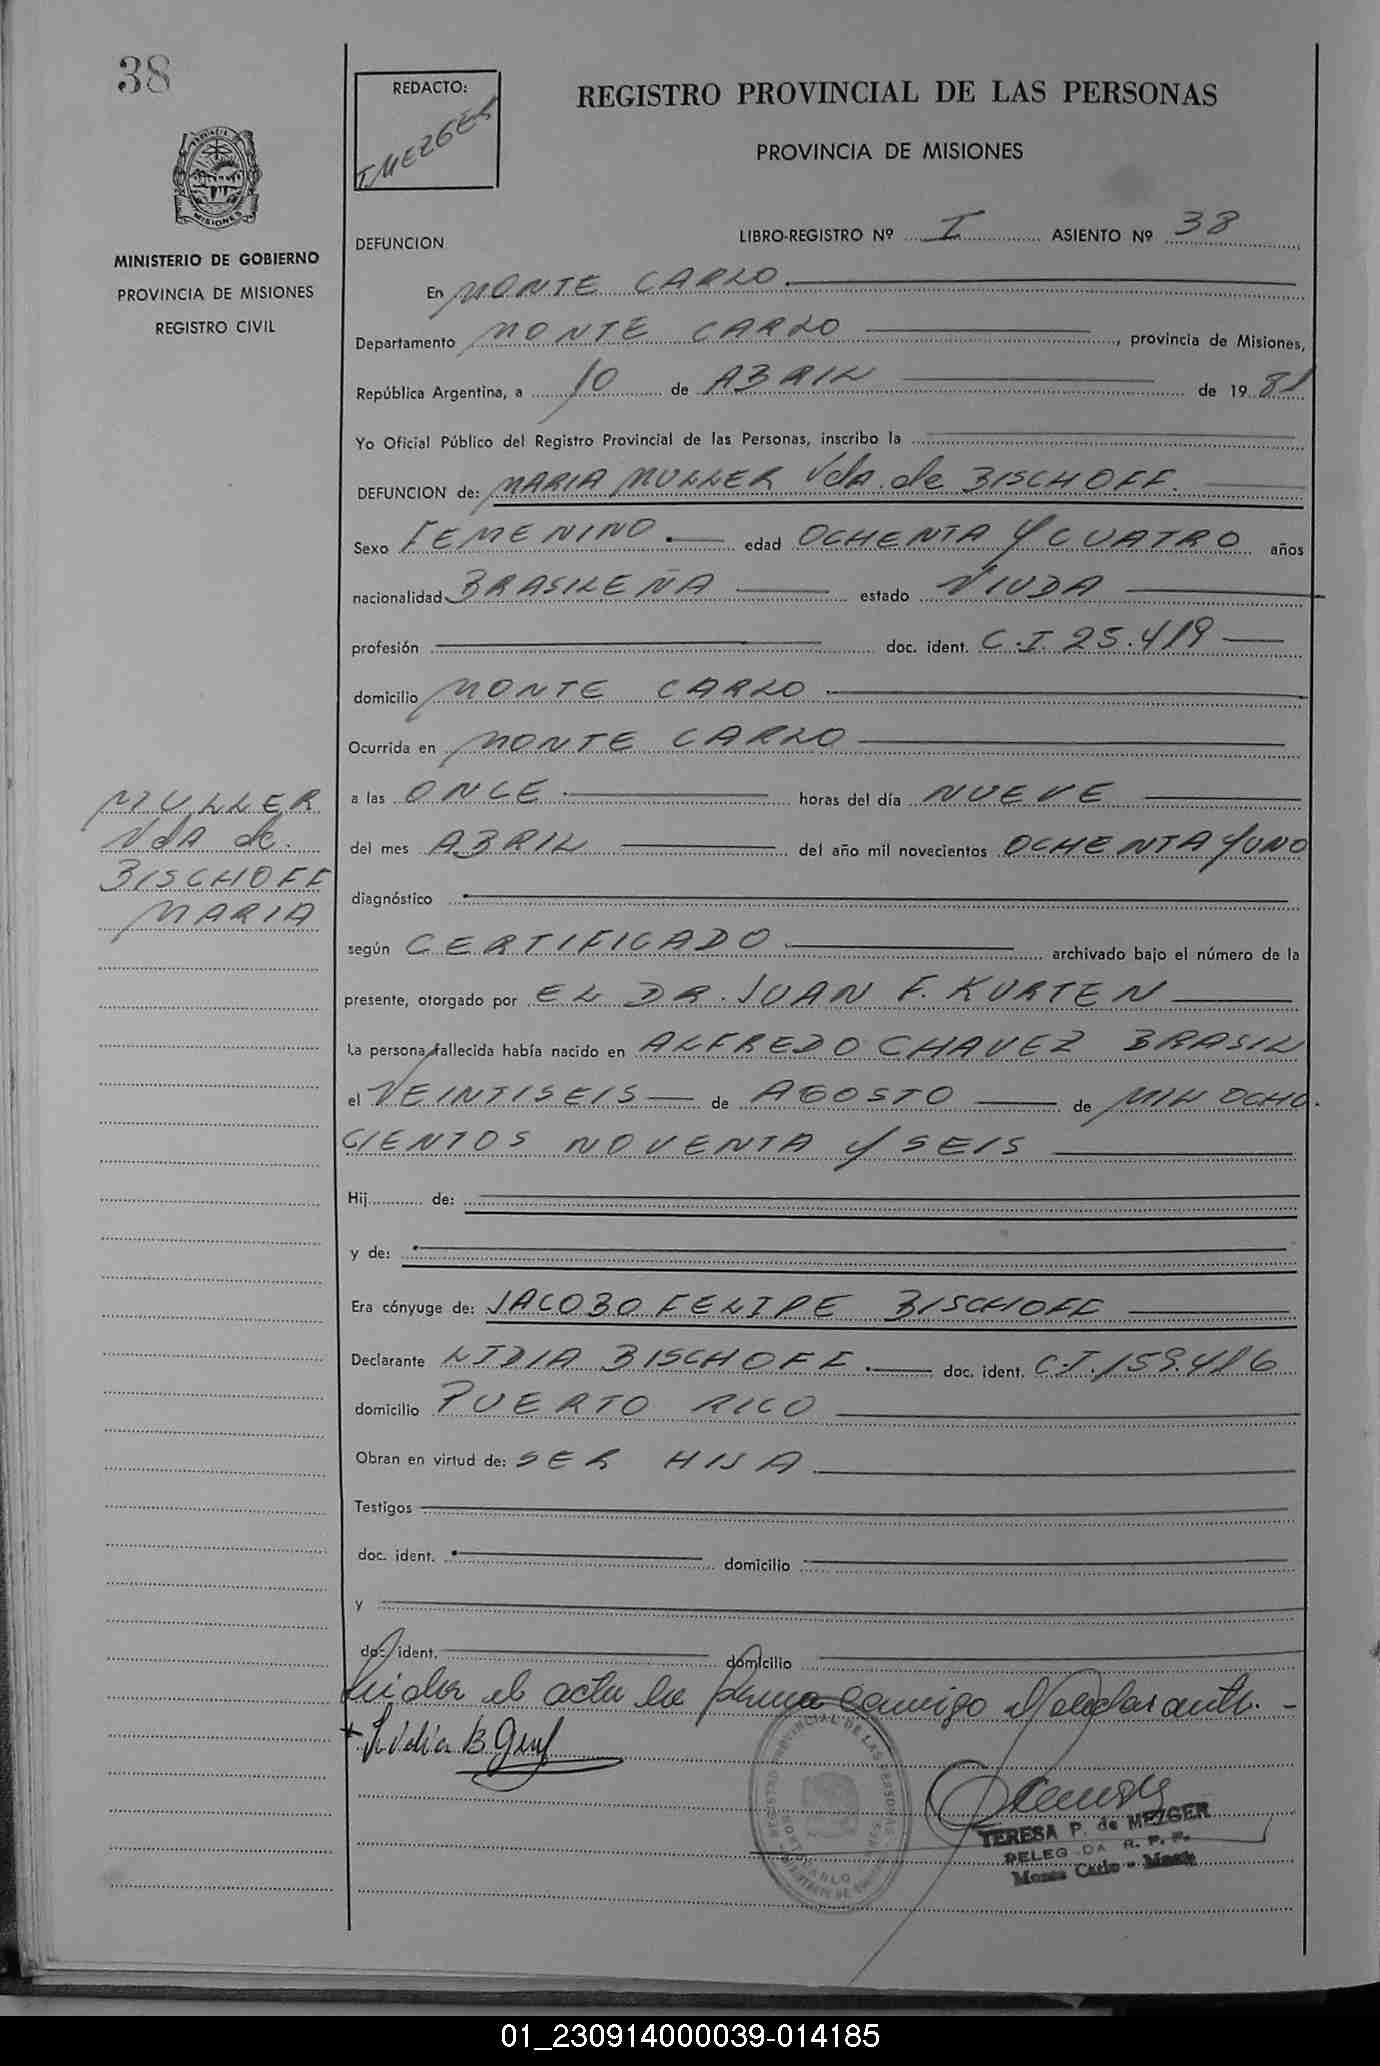 38
REDACTO:
T MEZGER
REGISTRO PROVINCIAL DE LAS PERSONAS
PROVINCIA DE MISIONES
MISIONES
MINISTERIO DE GOBIERNO
PROVINCIA DE MISIONES
REGISTRO CIVIL
DEFUNCION
LIBRO-REGISTRO Nº I ASIENTO Nº 38
En MONTE CARLO
Departamento MONTE CARLO, provincia de Misiones,
República Argentina, a 10 de ABRIL de 1981
Yo Oficial Público del Registro Provincial de las Personas, inscribo la
DEFUNCION de: MARIA MULLER Vda. de BISCHOFF.
Sexo FEMENINO. edad OCHENTA Y CUATRO años
nacionalidad BRASILEÑA estado VIUDA
profesión doc. ident. C.I. 25.419
domicilio MONTE CARLO
Ocurrida en MONTE CARLO
a las ONCE horas del día NUEVE
del mes ABRIL del año mil novecientos OCHENTA Y UNO
diagnóstico
según CERTIFICADO archivado bajo el número de la
presente, otorgado por EL DR. JUAN F. KURTEN
La persona fallecida había nacido en ALFREDO CHAVEZ BRASIL
el VEINTISEIS de AGOSTO de MIL OCHO.
CIENTOS NOVENTA Y SEIS
Hij de:
y de:
Era cónyuge de: JACOBO FELIPE BISCHOFF
Declarante LIDIA BISCHOFF. doc. ident. C.I. 159.416
domicilio PUERTO RICO
Obran en virtud de: SER HIJA
Testigos
doc. ident. domicilio
y
doc. ident. domicilio
Leida el acta la firma conmigo el declarante. -
Lidia B. Genf
MULLER
Vda de.
BISCHOFF
MARIA
REGISTRO PROVINCIAL DE LAS PERSONAS
MONTE CARLO
TERESA P. de MEZGER
DELEGADA R. P. P.
Monte Carlo - Mnes
01_230914000039-014185